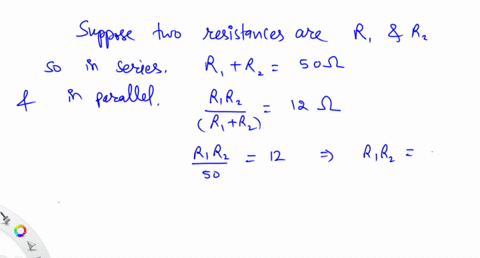 Suppose two resistances are R₁ & R₂
so in series. R₁ + R₂ = 50Ω
& in parallel. R₁R₂/(R₁+R₂) = 12 Ω
R₁R₂/50 = 12 ⇒ R₁R₂ =